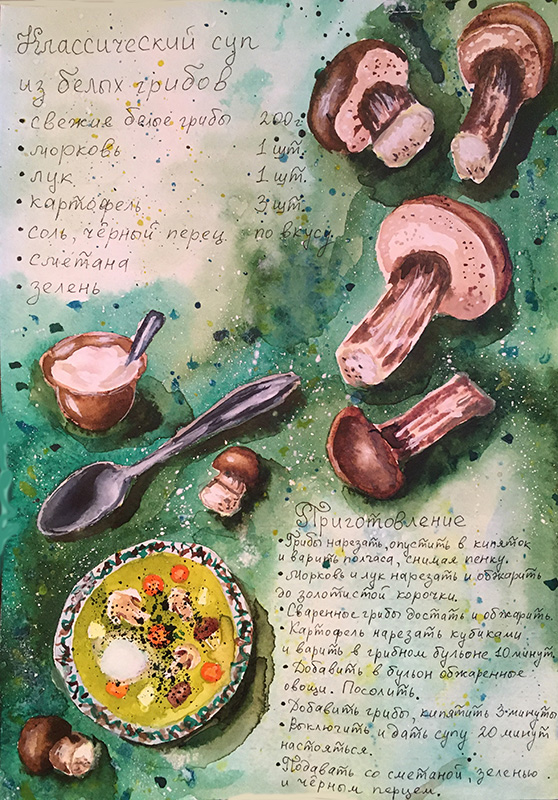 Классический суп
из белых грибов
• свежие белые грибы 200г
• морковь 1 шт.
• лук 1 шт.
• картофель 3 шт.
• соль, чёрный перец по вкусу
• сметана
• зелень
Приготовление
• Грибы нарезать, опустить в кипяток
и варить полчаса, снимая пенку.
• Морковь и лук нарезать и обжарить
до золотистой корочки.
• Сваренное грибы достать и обжарить.
• Картофель нарезать кубиками
и варить в грибном бульоне 10 минут
• Добавить в бульон обжаренные
овощи. Посолить.
• Добавить грибы, кипятить 3 минуты
• Выключить и дать супу 20 минут
настояться.
• Подавать со сметаной, зеленью
и чёрным перцем.